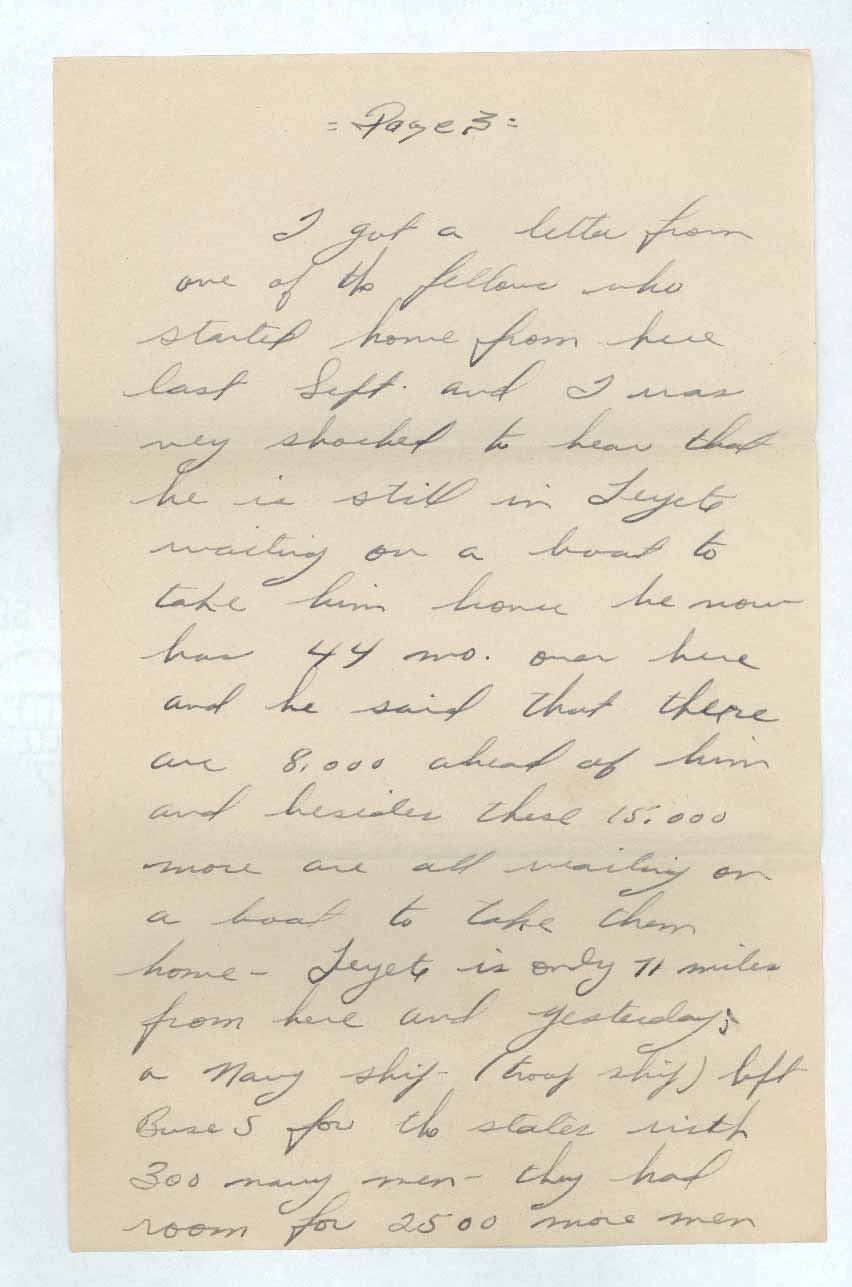 = Page 3 =
I got a letter from
one of the fellows who
started home from here
last Sept. and I was
very shocked to hear that
he is still in Leyete
waiting on a boat to
take him home he now
has 44 mo. over here
and he said that there
are 8,000 ahead of him
and besides these 15,000
more are all waiting on
a boat to take them
home - Leyete is only 71 miles
from here and yesterday,
a Navy ship - (troop ship) left
Base S for the states with
300 navy men - they had
room for 2500 more men